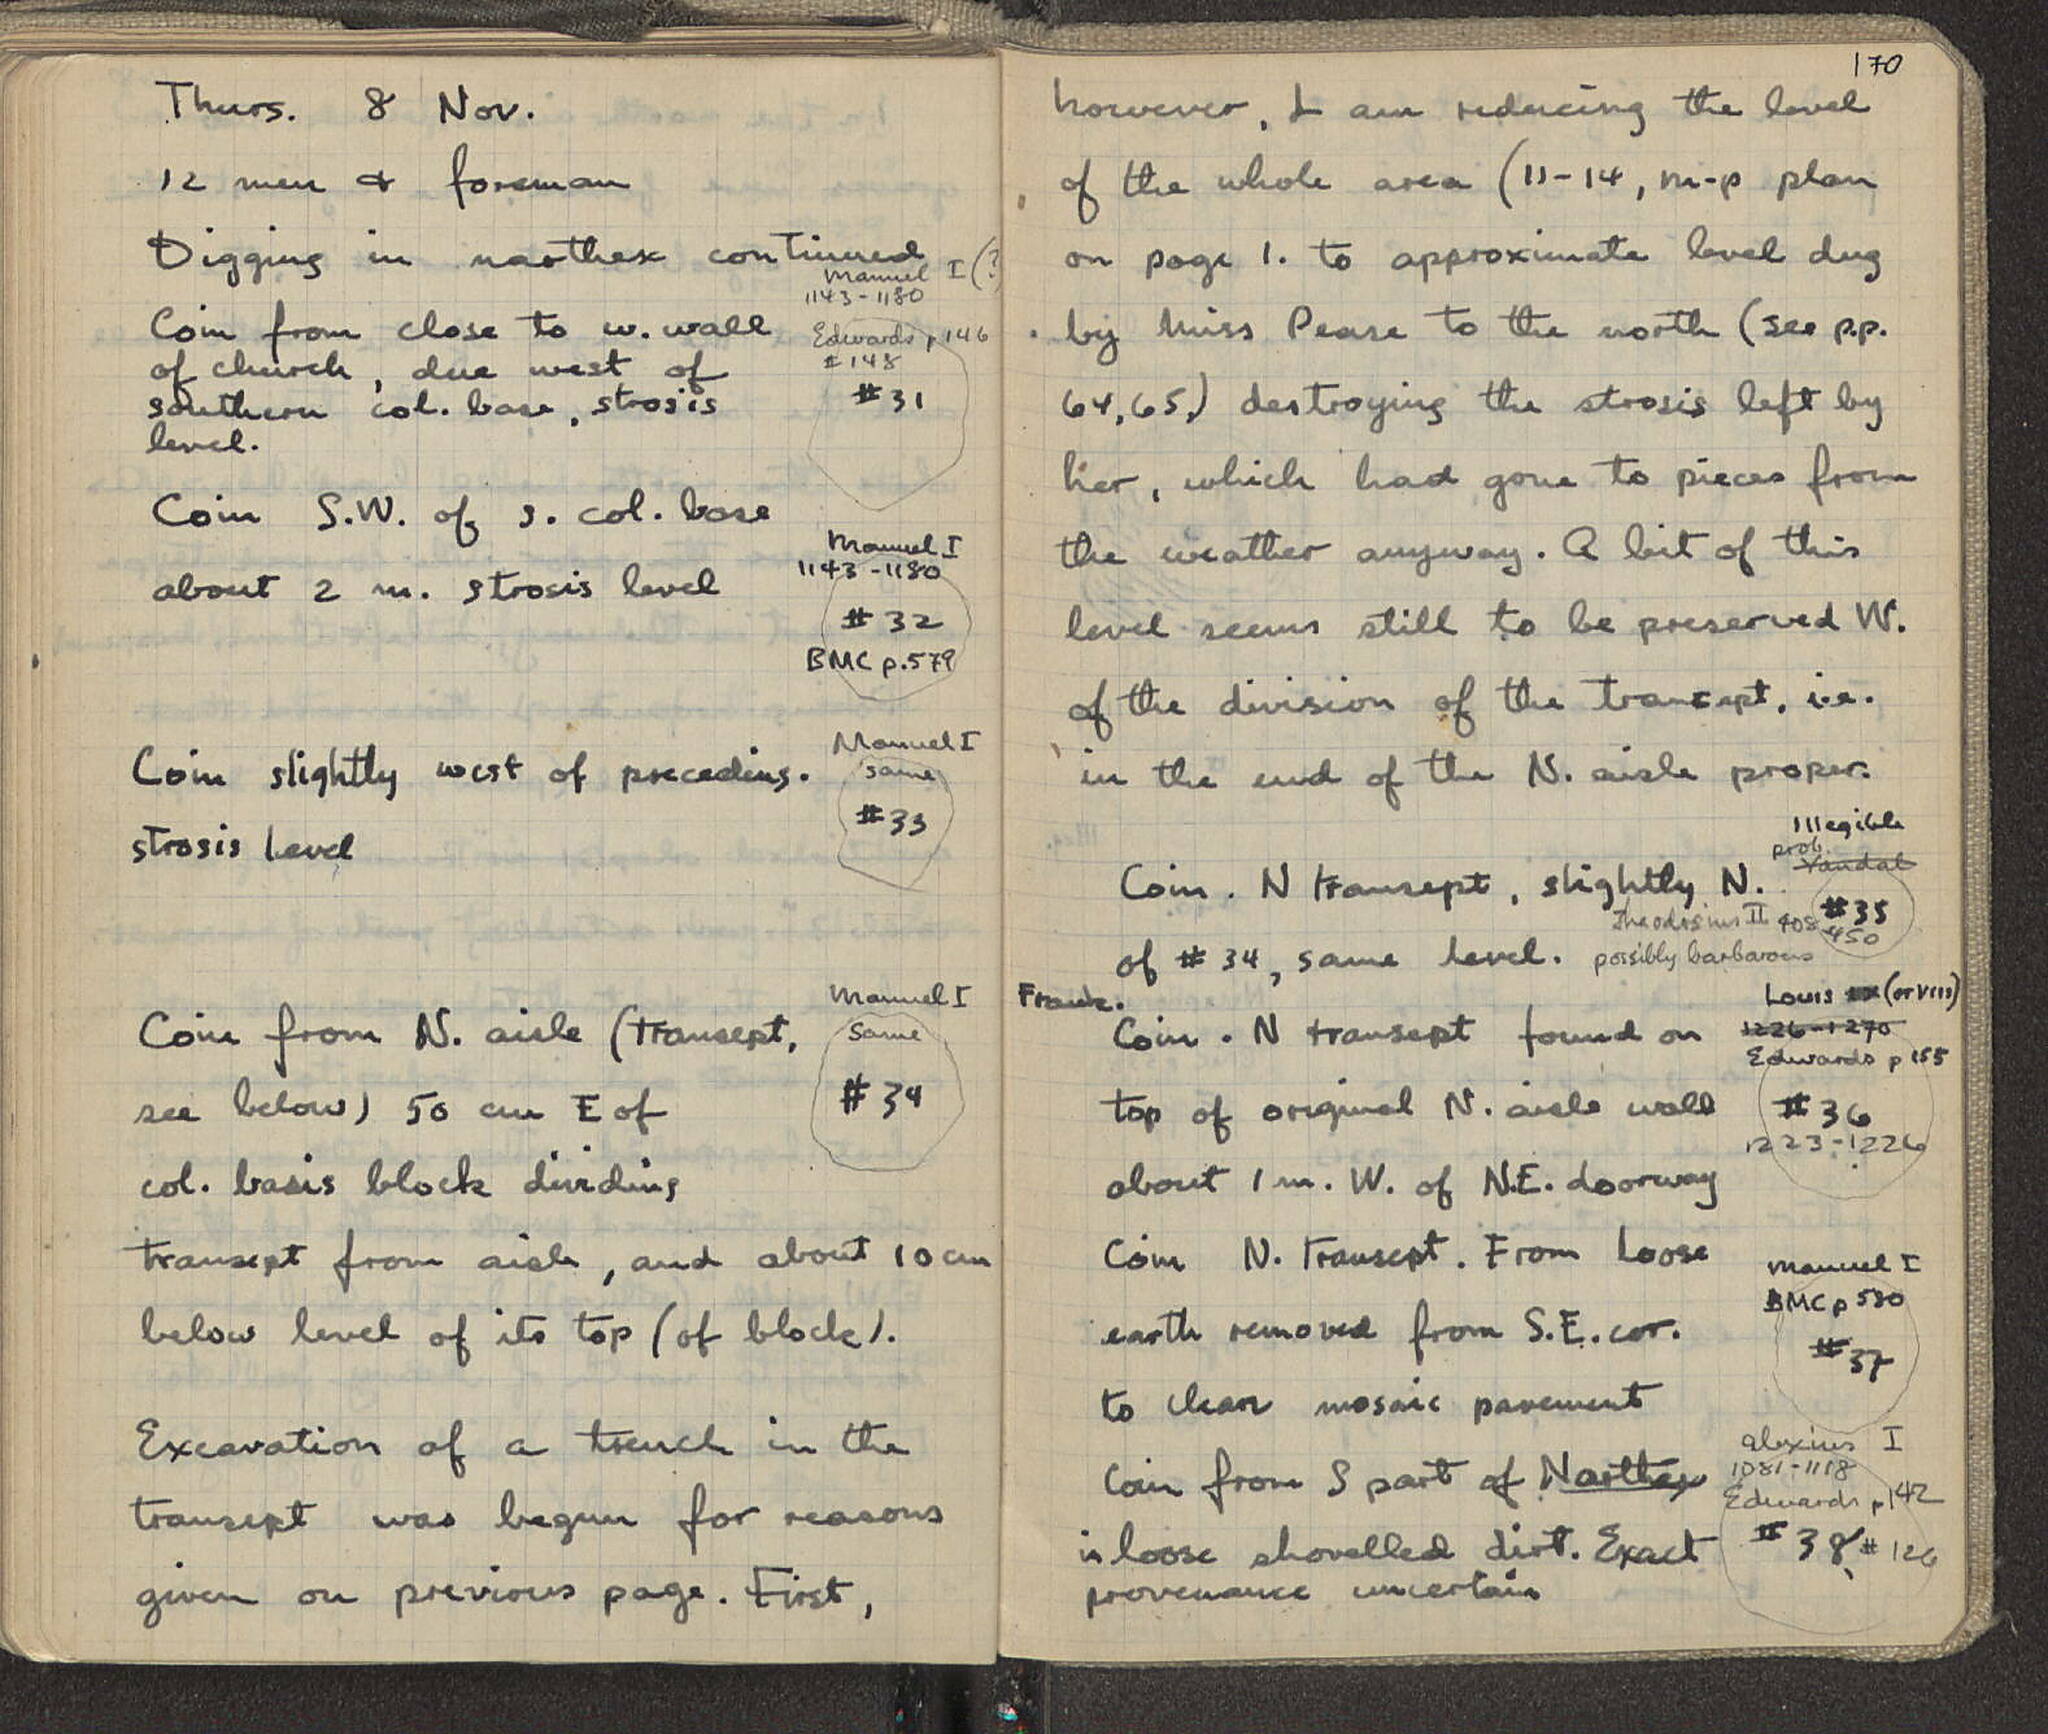 Thurs. 8 Nov.
12 men & foreman
Digging in narthex continued
Manuel I (?
1143-1180
Coin from close to w. wall
Edwards p 146
# 148
of church, due west of
southern col. base, strosis
#31
level.
Coin S.W. of s. col. base
Manuel I
1143-1180
about 2 m. strosis level
#32
BMC p.579
Manuel I
Coin slightly west of preceding.
same
#33
strosis level
Manuel I
Coin from N. aisle (transept,
same
see below) 50 cm E of
#34
col. basis block dividing
transept from aisle, and about 10 cm
below level of its top (of block).
Excavation of a trench in the
transept was begun for reasons
given on previous page. First,
170
however, I am reducing the level
of the whole area (11-14, m-p plan
on page 1. to approximate level dug
by Miss Pease to the north (see p.p.
64,65,) destroying the strosis left by
her, which had gone to pieces from
the weather anyway. A bit of this
level seems still to be preserved W.
of the division of the transept, i.e.
in the end of the N. aisle proper.
Illegible
prob.
Vandal
Coin. N transept, slightly N.
#35
Theodosius II 408
450
of #34, same level.
possibly barbarous
Frank.
Louis IX (or VIII)
Coin. N transept found on
1226-1270
Edwards p 155
top of original N. aisle wall
#36
1223-1226
about 1 m. W. of N.E. doorway
Coin N. transept. From loose
Manuel I
BMC p 580
earth removed from S.E. cor.
#37
to clean mosaic pavement
Alexius I
1081-1118
Coin from S part of Narthex
Edwards p 142
in loose shovelled dirt. Exact
#38 #126
provenance uncertain